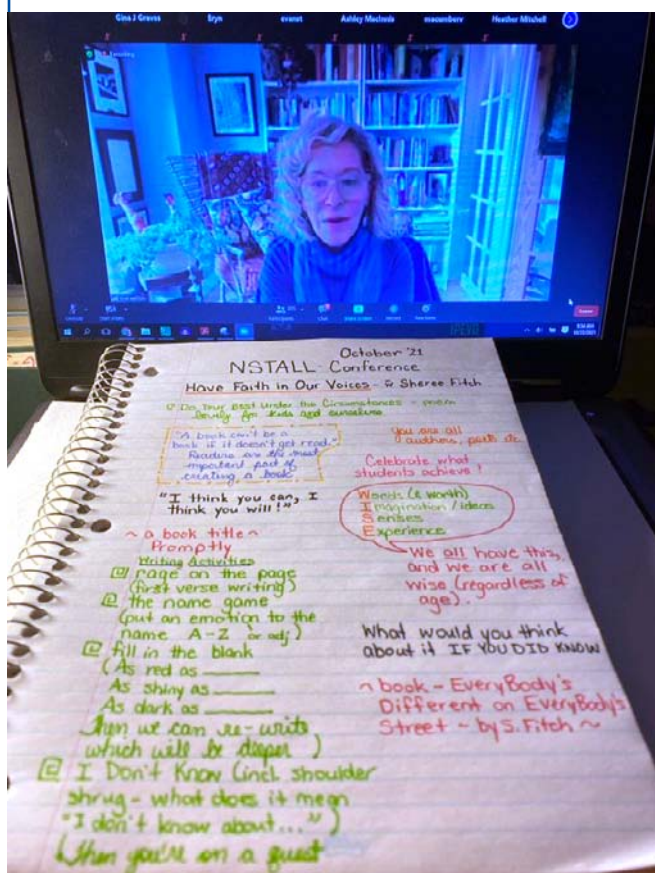 Gina J Graves
Eryn
evanst
Ashley MacInnis
macumberv
Heather Mitchell
October '21
NSTALL Conference
Have Faith in Our Voices - Sheree Fitch
Do Your Best Under the Circumstances - poem
for kids and ourselves
"A book can't be a
book if it doesn't get read."
Readers are the most
important part of
creating a book
"I think you can, I
think you will!"
~ a book title ~
Promptly
Writing Activities
rage on the page
(first verse writing)
the name game
(put an emotion to the
name A-Z or adj)
fill in the blank
(As red as
As shiny as
As dark as
Then we can re-write
which will be deeper )
I Don't Know (incl. shoulder
shrug - what does it mean
"I don't know about..." )
(Then you're on a quest
You are all
authors, poets etc.
Celebrate what
students achieve!
Words (& worth)
Imagination / ideas
Senses
Experience
We all have this,
and we are all
wise (regardless of
age).
What would you think
about it IF YOU DID KNOW
~ book - EveryBody's
Different on EveryBody's
Street - by S. Fitch ~